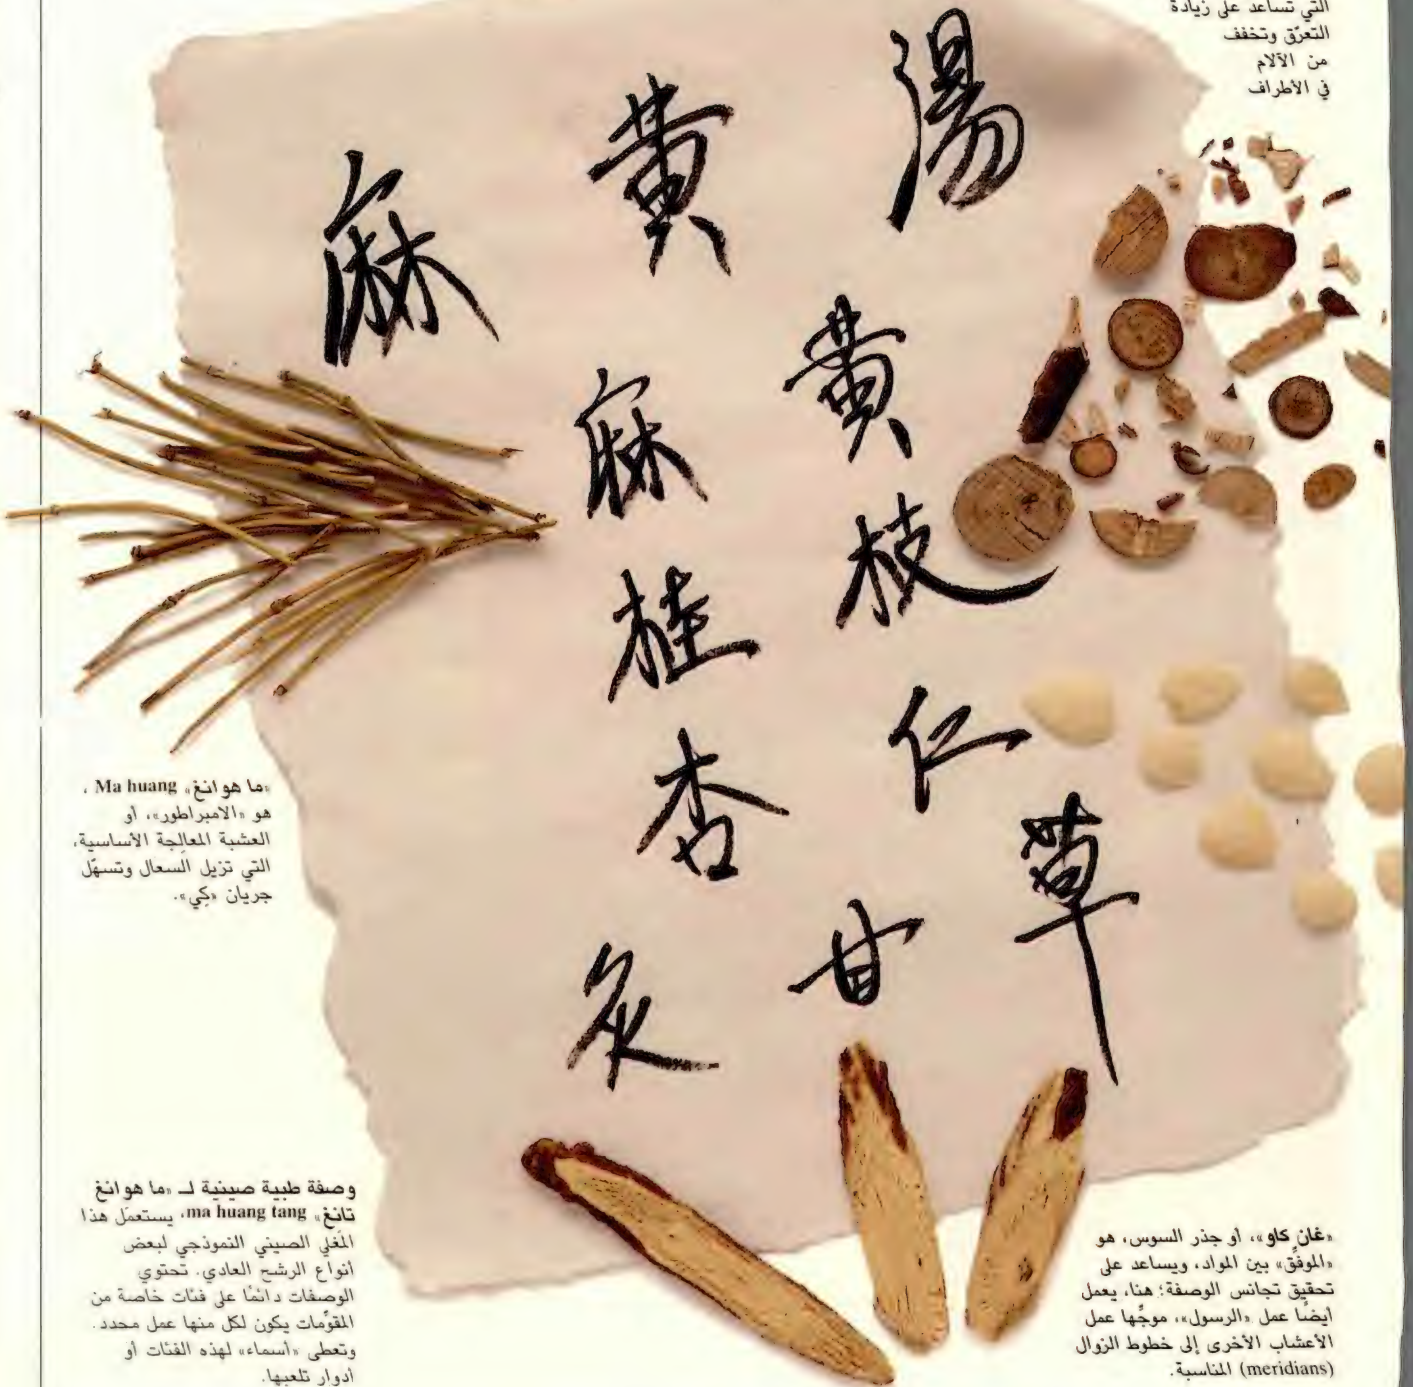 التي تساعد على زيادة
التعرّق وتخفف
من الآلام
في الأطراف
麻黃湯
麻黃
桂枝
杏仁
炙甘草
«ما هو انغ» Ma huang،
هو «الامبراطور»، أو
العشبة المعالِجة الأساسية،
التي تزيل السعال وتسهّل
جريان «كِي».
وصفة طبية صينية لـ «ما هو انغ
تانغ» ma huang tang، يستعمَل هذا
المَغلي الصيني النموذجي لبعض
أنواع الرشح العادي. تحتوي
الوصفات دائمًا على فئات خاصة من
المقوِّمات يكون لكل منها عمل محدد.
وتعطى «أسماء» لهذه الفئات أو
أدوار تلعبها.
«غان كاو»، أو جذر السوس، هو
«الموفِّق» بين المواد، ويساعد على
تحقيق تجانس الوصفة؛ هنا، يعمل
أيضًا عمل «الرسول»، موجِّها عمل
الأعشاب الأخرى إلى خطوط الزوال
(meridians) المناسبة.